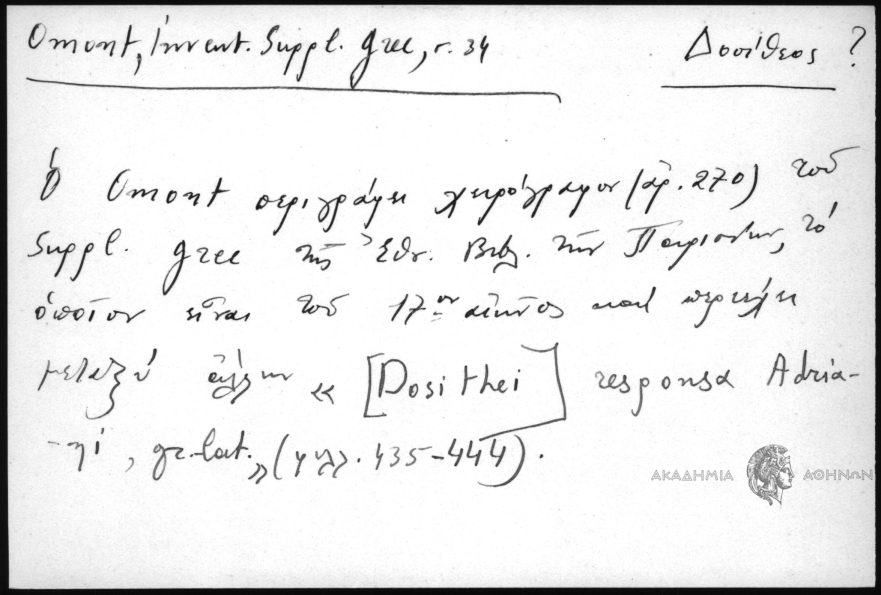 Omont, Invent. Suppl. Grec, σ. 34
Δοσίθεος ?
Ὁ Omont περιγράφει χειρόγραφον (ἀρ. 270) τοῦ
Suppl. Grec τῆς Ἐθν. Βιβλ. τῶν Παρισίων, τὸ
ὁποῖον εἶναι τοῦ 17ου αἰῶνος καὶ περιέχει
μεταξὺ ἄλλων « [Dosithei] responsa Adria-
-ni, gr.-lat.» (φυλλ. 435-444).
ΑΚΑΔΗΜΙΑ ΑΘΗΝΩΝ